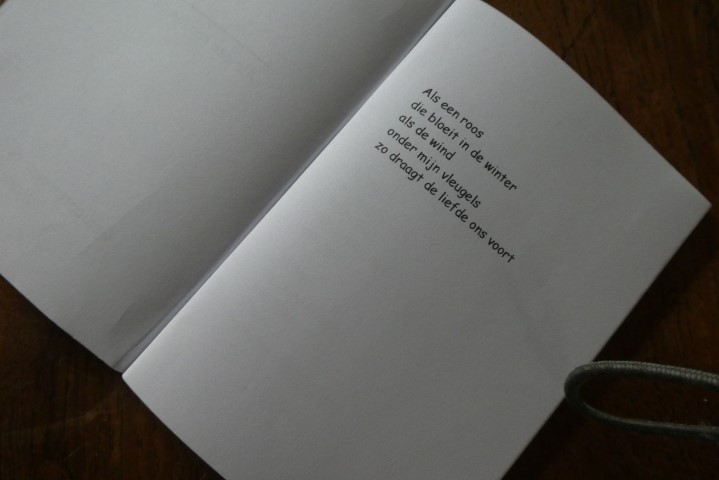 Als een roos
die bloeit in de winter
als de wind
onder mijn vleugels
zo draagt de liefde ons voort